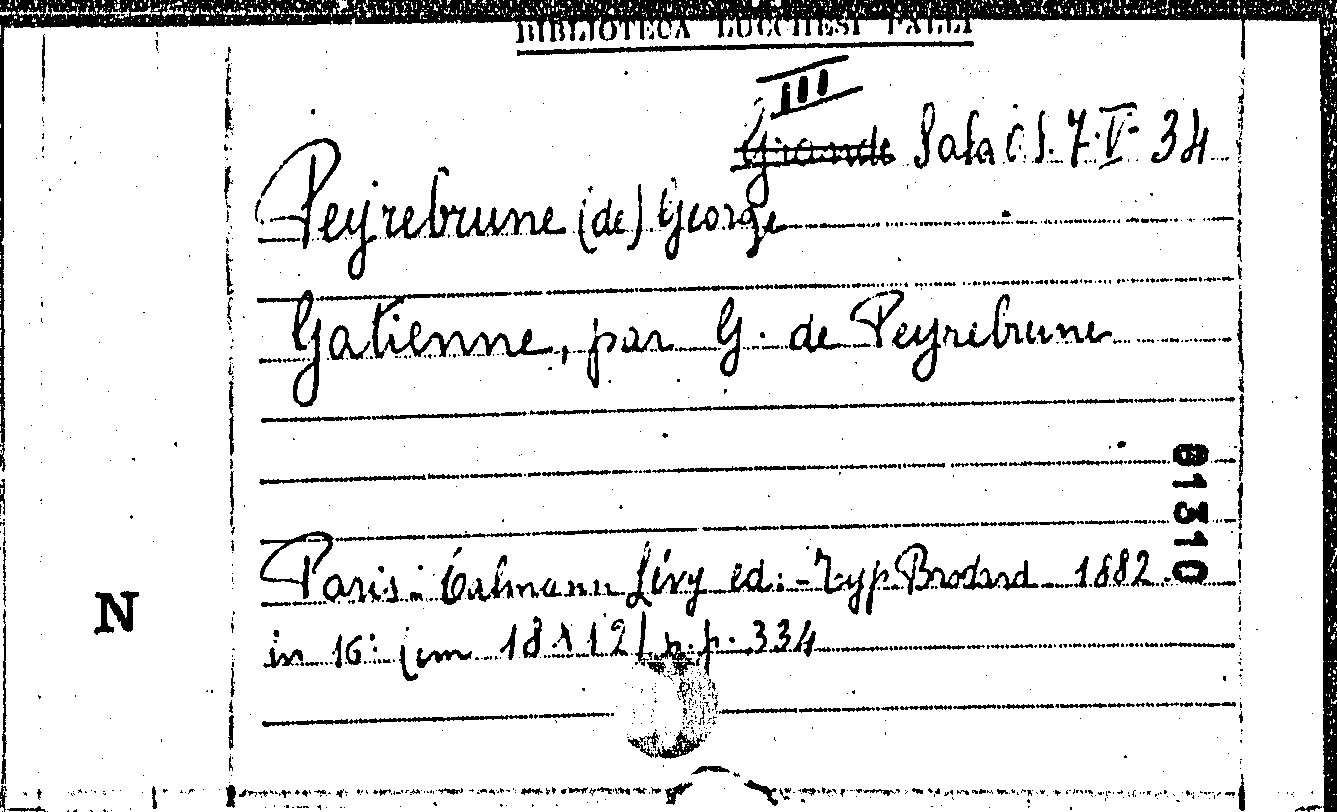 BIBLIOTECA LUCCHESI PALLI
III
Grande Sala 7. V- 34
Peyrebrune (de) George
Gatienne, par G. de Peyrebrune
01310
Paris - Calmann Lévy ed. - Typ Brodard - 1882.
N
in 16° (cm 18x12) p.p. 334